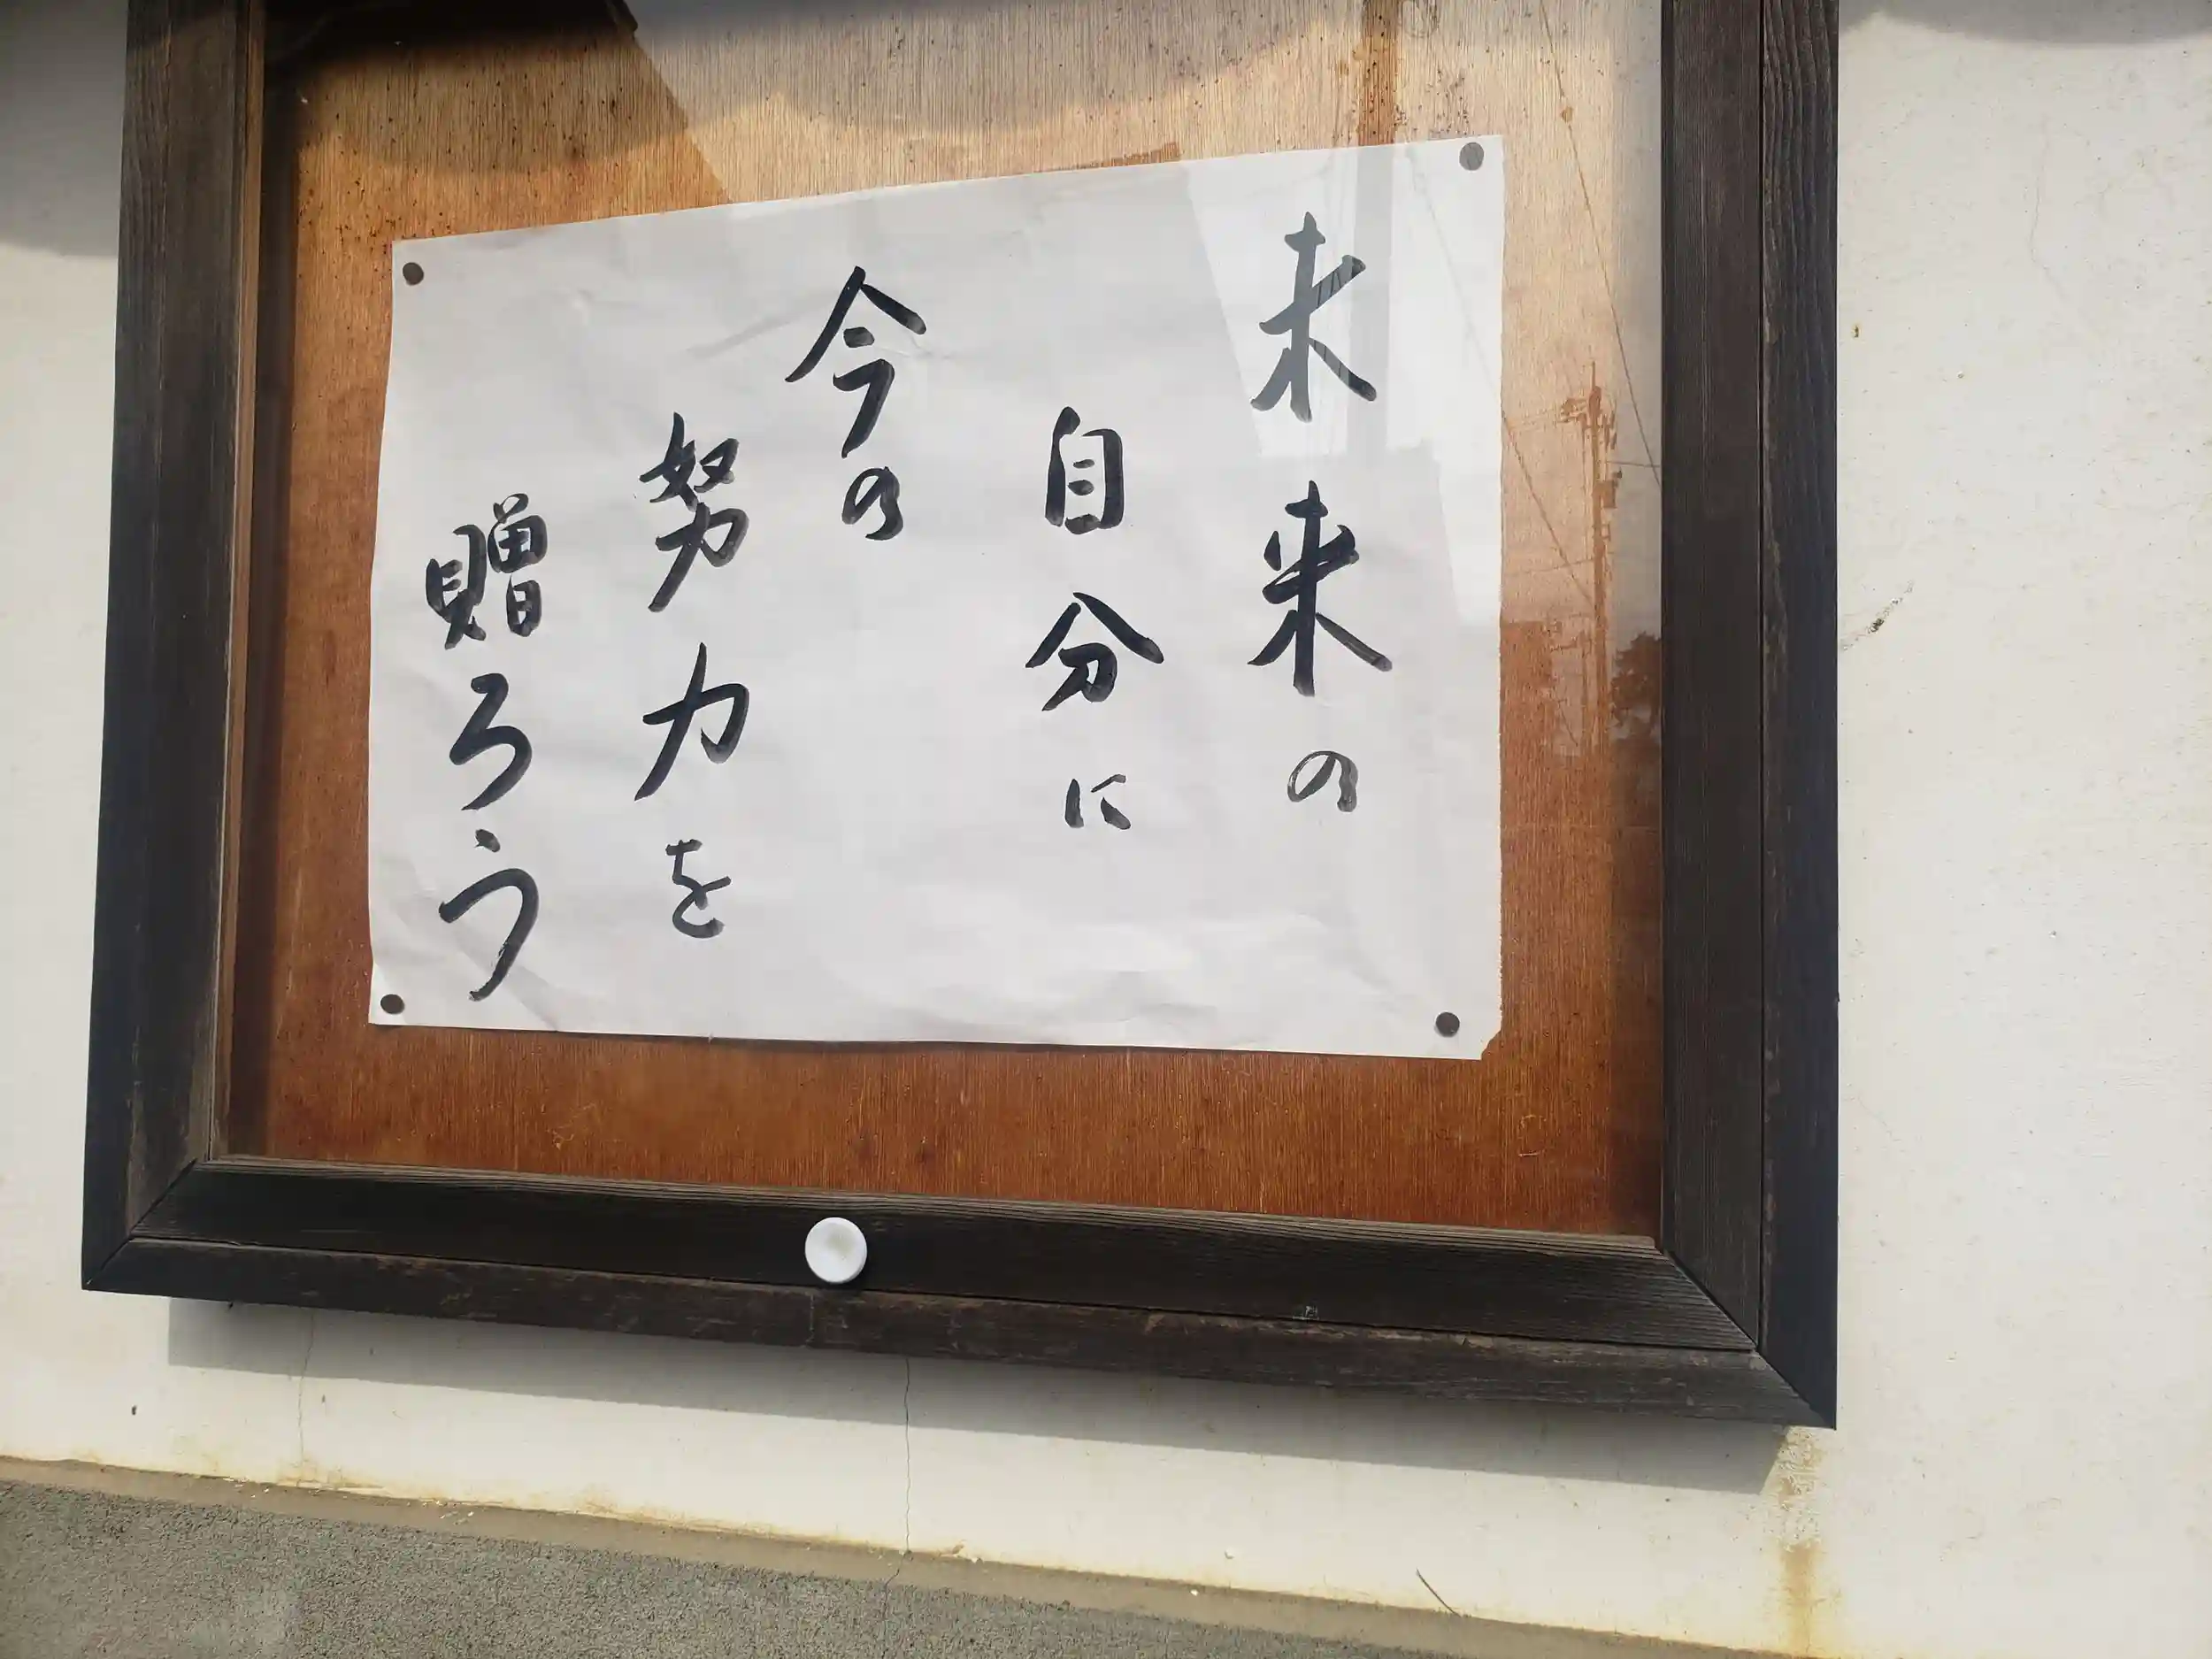 未来の
自分に
今の
努力を
贈ろう